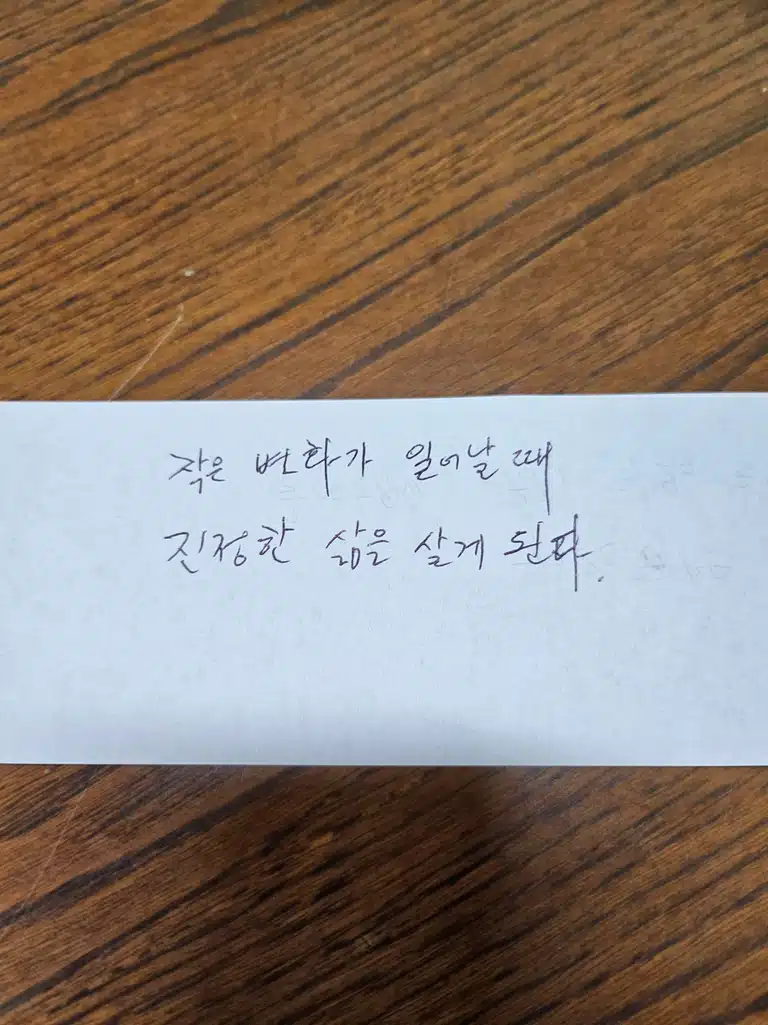 작은 변화가 일어날 때
진정한 삶을 살게 된다.